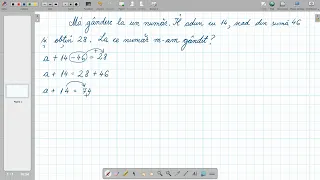 Mă gândesc la un număr. Îl adun cu 14, scad din sumă 46
și obțin 28. La ce număr m-am gândit?
a + 14 - 46 = 28
a + 14 = 28 + 46
a + 14 = 74